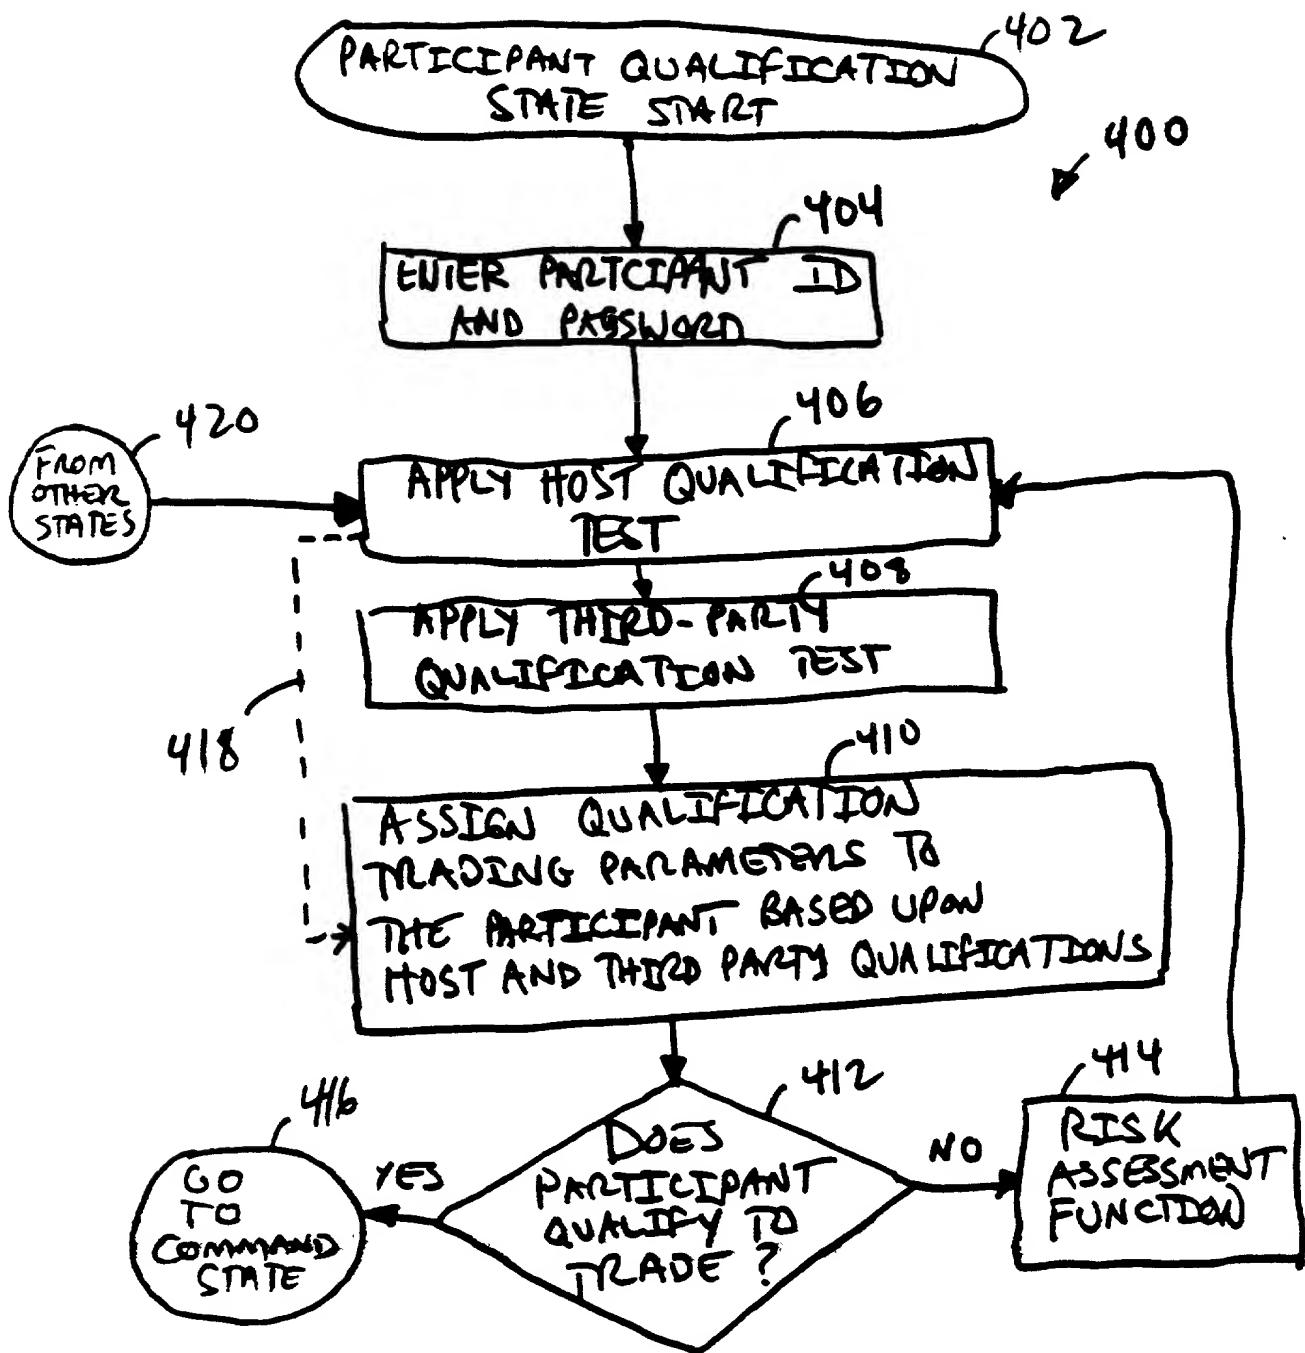 402
PARTICIPANT QUALIFICATION
STATE START
400
404
ENTER PARTCIPANT ID
AND PASSWORD
406
420
FROM
OTHER
STATES
APPLY HOST QUALIFICATION
TEST
408
APPLY THIRD-PARTY
QUALIFICATION TEST
418
410
ASSIGN QUALIFICATION
TRADING PARAMETERS TO
THE PARTICIPANT BASED UPON
HOST AND THIRD PARTY QUALIFICATIONS
412
414
416
DOES
PARTICIPANT
QUALIFY TO
TRADE ?
YES
NO
GO
TO
COMMAND
STATE
RISK
ASSESSMENT
FUNCTION